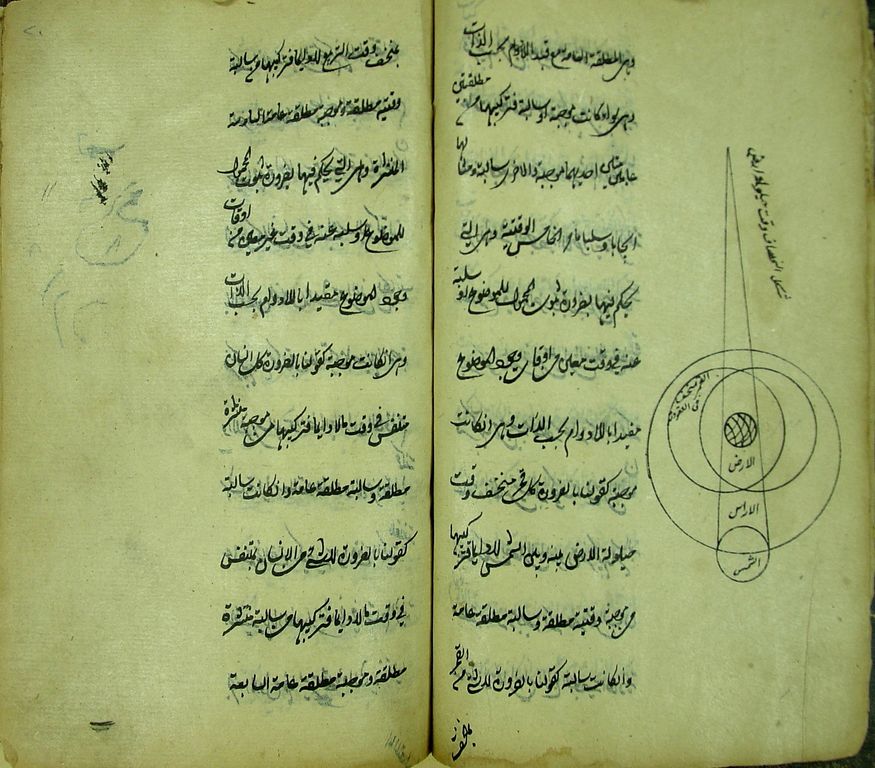 وهي المطلقة العامة مع قيد اللادوام بحسب الذات
وهي سواء كانت موجبة او سالبة فتركيبها من مطلقتين
عامتين احديهما موجبة والاخرى سالبة ومثالها
ايجابا وسلبا ما مر الخامس الوقتية وهي التي
يحكم فيها بضرورة ثبوت المحمول للموضوع او سلبه
عنه في وقت معين من اوقات وجود الموضوع
مقيدا باللادوام بحسب الذات وهي ان كانت
موجبة كقولنا بالضرورة كل قمر منخسف وقت
حيلولة الارض بينه وبين الشمس لا دائما فتركيبها
من موجبة وقتية مطلقة وسالبة مطلقة عامة
وان كانت سالبة كقولنا بالضرورة لا شئ من القمر
بمنخسف
شكل انخساف وقت حيلولة ارض
القمر منخسف
في العقدة
الارض
الراس
الشمس
بمنخسف وقت التربيع لا دائما فتركيبها من سالبة
وقتية مطلقة وموجبة مطلقة عامة السادسة
المنتشرة وهي التي يحكم فيها بضرورة ثبوت المحمول
للموضوع او سلبه عنه في وقت غير معين من اوقات
وجود الموضوع مقيدا باللادوام بحسب الذات
وهي ان كانت موجبة كقولنا بالضرورة كل انسان
متنفس في وقت ما لا دائما فتركيبها من موجبة منتشرة
مطلقة وسالبة مطلقة عامة وان كانت سالبة
كقولنا بالضرورة لا شئ من الانسان بمتنفس
في وقت ما لا دائما فتركيبها من سالبة منتشرة
مطلقة وموجبة مطلقة عامة السابعة